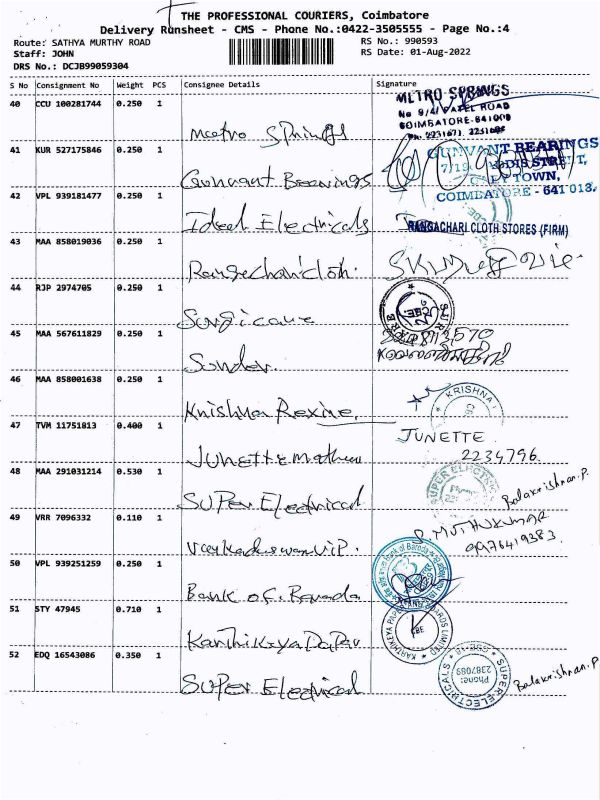 THE PROFESSIONAL COURIERS, Coimbatore
Delivery Runsheet - CMS - Phone No.:0422-3505555 - Page No.:4
Route: SATHYA MURTHY ROAD RS No.: 990593
Staff: JOHN RS Date: 01-Aug-2022
DRS No.: DCJB99059304
S No Consignment No Weight PCS Consignee Details Signature
40 CCU 100281744 0.250 1 Meetro Springs
METRO SPRINGS
No 9/4 PATEL ROAD
COIMBATORE-641009
41 KUR 527175846 0.250 1 Gunvant Bearings
GUNVANT BEARINGS
TOWN,
COIMBATORE - 641 018.
42 VPL 939181477 0.250 1 Ideal Electricals
RANGACHARI CLOTH STORES (FIRM)
43 MAA 858019036 0.250 1 Rangachari cloth.
44 RJP 2974705 0.250 1 Surgicare
45 MAA 567611829 0.250 1 Sunder.
46 MAA 858001638 0.250 1 Krishna Rexine.
KRISHNA
47 TVM 11751813 0.400 1 Junette Mathew
JUNETTE
2234796.
48 MAA 291031214 0.530 1 SUPer Electrical
SUPER ELECTRIC
Balakrishnan.P.
49 VRR 7096332 0.110 1
S. MUTHUKUMAR
9976419383.
50 VPL 939251259 0.250 1 Bank of. Baroda
Bank of Baroda
51 STY 47945 0.710 1 Karthikeya Paper
KARTHIKEYA PAPER BOARDS LIMITED
CBE
52 EDQ 16543086 0.350 1 SUPer Electrical
SUPER ELECTRICALS
CBE-18
Phone:
2387089
Balakrishnan.P